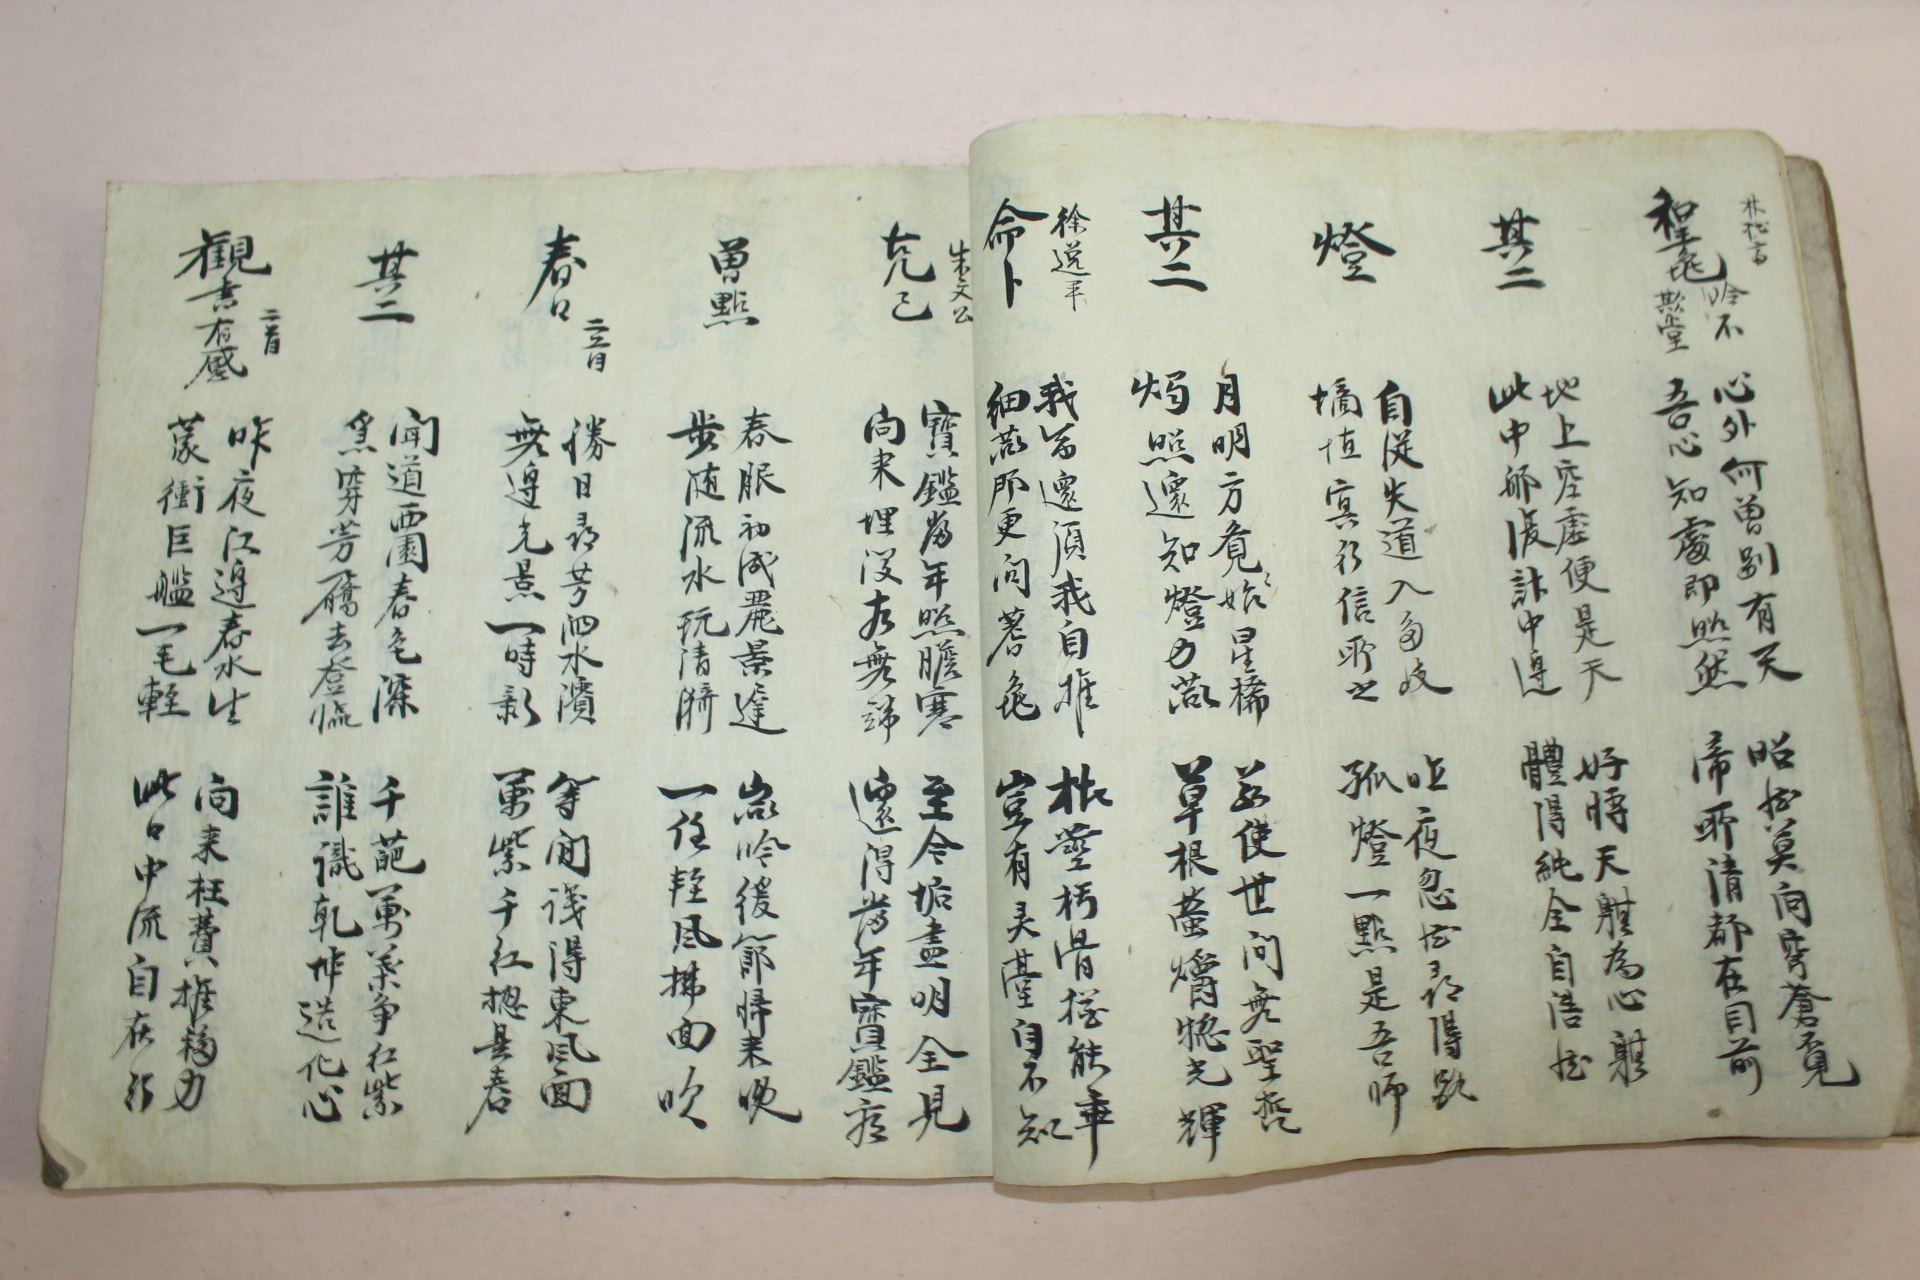 林松
聖龜吟不
欺堂
心外何曾別有天
吾心知處即照然
昭昭莫向穹蒼覓
帝所清都在目前
其二
地上空虛便是天
此中那復計中邊
好將天體為心體
體得純全自浩然
燈
自從失道入多岐
擿埴冥行信所之
昨夜忽然尋得路
孤燈一點是吾師
其二
月明方覺始星稀
燭照還知燈力微
若使世間無聖哲
草根螢爝揔光輝
徐逆平
命卜
我命還須我自推
細微那更問蓍龜
枯莖朽骨揔能事
豈有灵臺自不知
朱文公
克己
寶鑑當年照膽寒
向來埋沒太無端
至今垢盡明全見
還得當年寶鑑看
曾點
春服初成麗景遲
步随流水玩清漪
微吟緩節歸来晚
一任輕風拂面吹
春日 二首
勝日尋芳泗水濱
無邊光景一時新
等閒識得東風面
萬紫千紅揔是春
其二
聞道西園春色深
急穿芳屩去登臨
千葩萬蘂争紅紫
誰識乾坤造化心
觀書有感 二首
昨夜江邊春水生
蒙衝巨艦一毛輕
向来枉費推移力
此日中流自在行